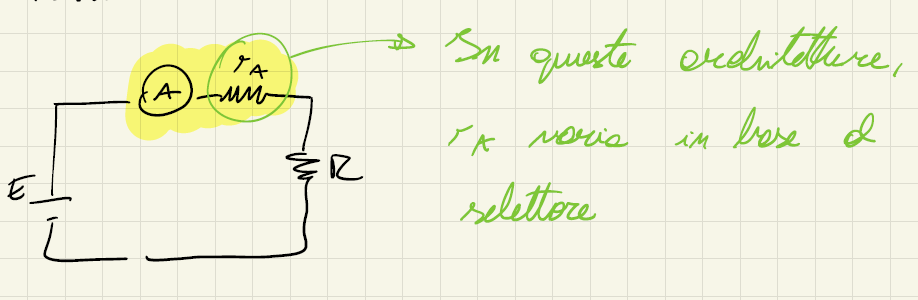 A
r_A
E
R
In queste architetture,
r_A varia in base al
selettore